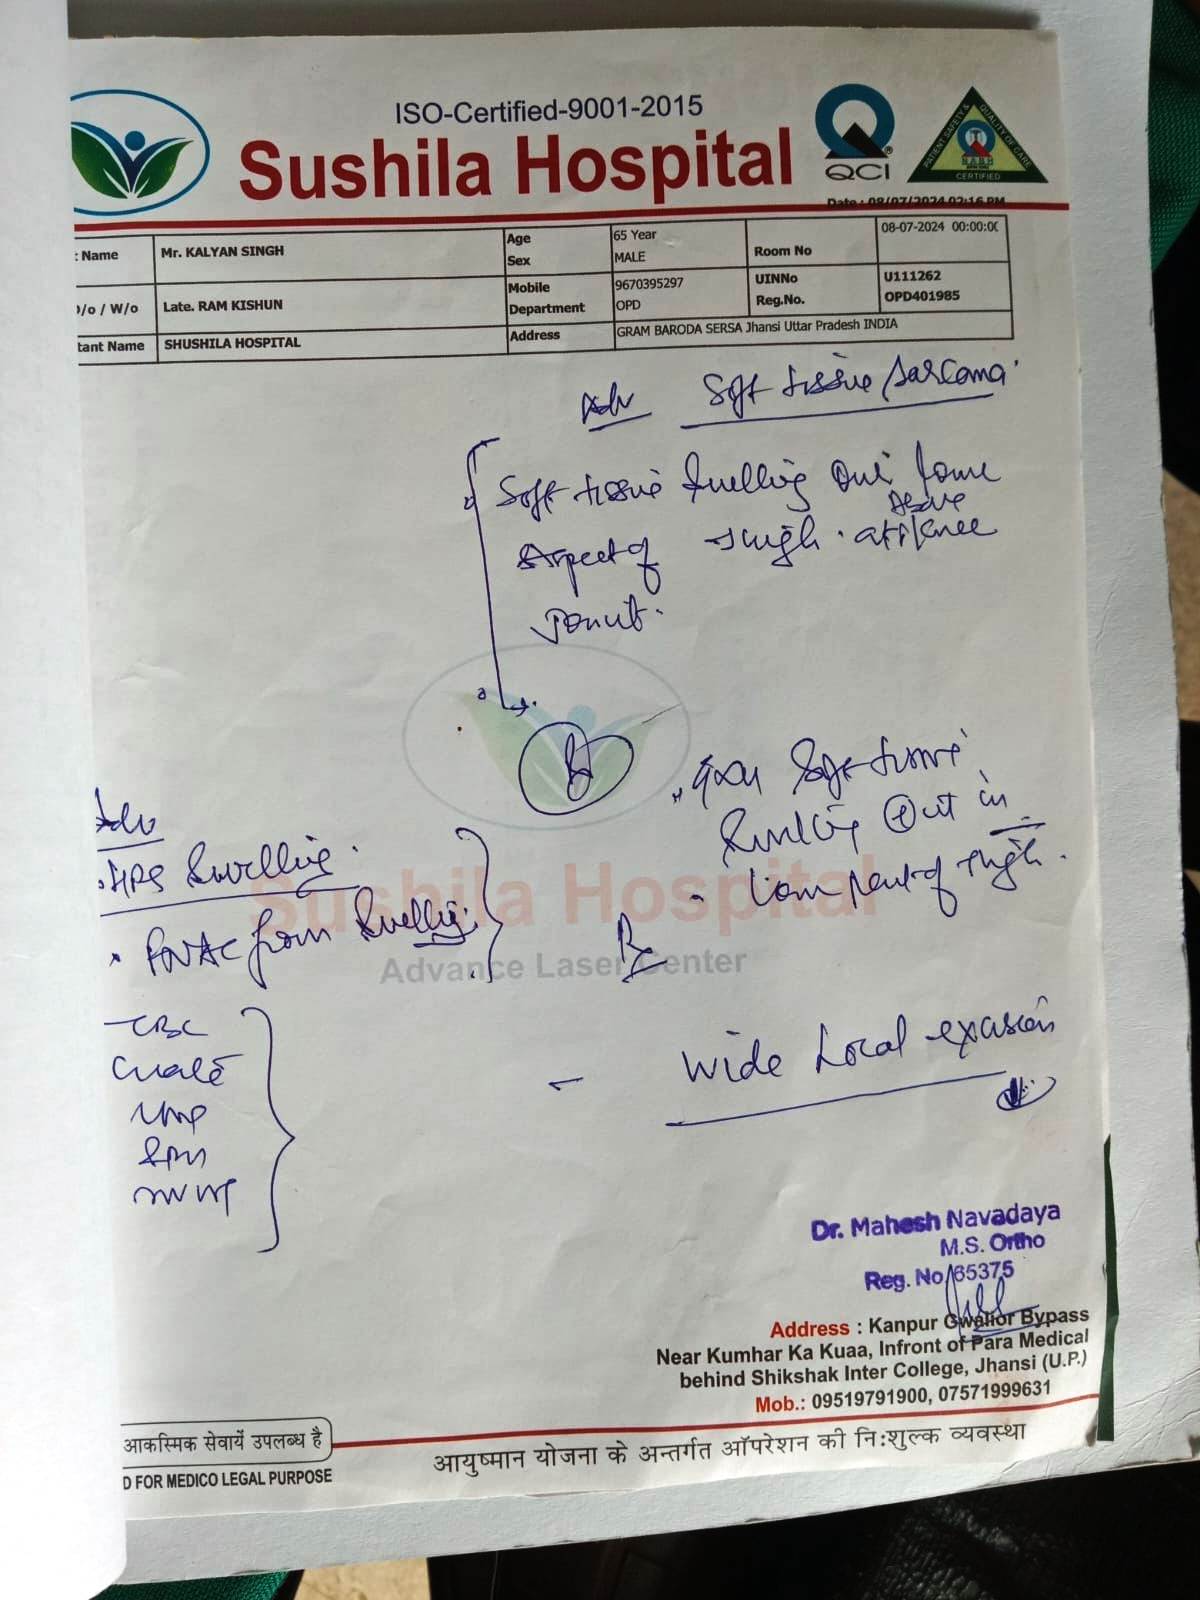 ISO-Certified-9001-2015
Sushila Hospital
QCI
PATIENT SAFETY & QUALITY OF CARE
CERTIFIED
Date : 08/07/2024 02:16 PM
t Name Mr. KALYAN SINGH Age 65 Year Sex MALE Room No 08-07-2024 00:00:0
D/o / W/o Late. RAM KISHUN Mobile 9670395297 Department OPD UINNo U111262 Reg.No. OPD401985
tant Name SHUSHILA HOSPITAL Address GRAM BARODA SERSA Jhansi Uttar Pradesh INDIA
Adv Soft tissue sarcoma
Soft tissue swelling
Above
Aspect of thigh. knee
Soft tissue
Swelling in
of thigh.
Adv
Swelling.
FNAC from swelling.
Sushila Hospital
Advance Laser Center
Rx
CBC
- wide Local excision
Dr. Mahesh Navadaya
M.S. Ortho
Reg. No 65375
Address : Kanpur Gwalior Bypass
Near Kumhar Ka Kuaa, Infront of Para Medical
behind Shikshak Inter College, Jhansi (U.P.)
Mob.: 09519791900, 07571999631
आकस्मिक सेवायें उपलब्ध है
आयुष्मान योजना के अन्तर्गत ऑपरेशन की निःशुल्क व्यवस्था
D FOR MEDICO LEGAL PURPOSE